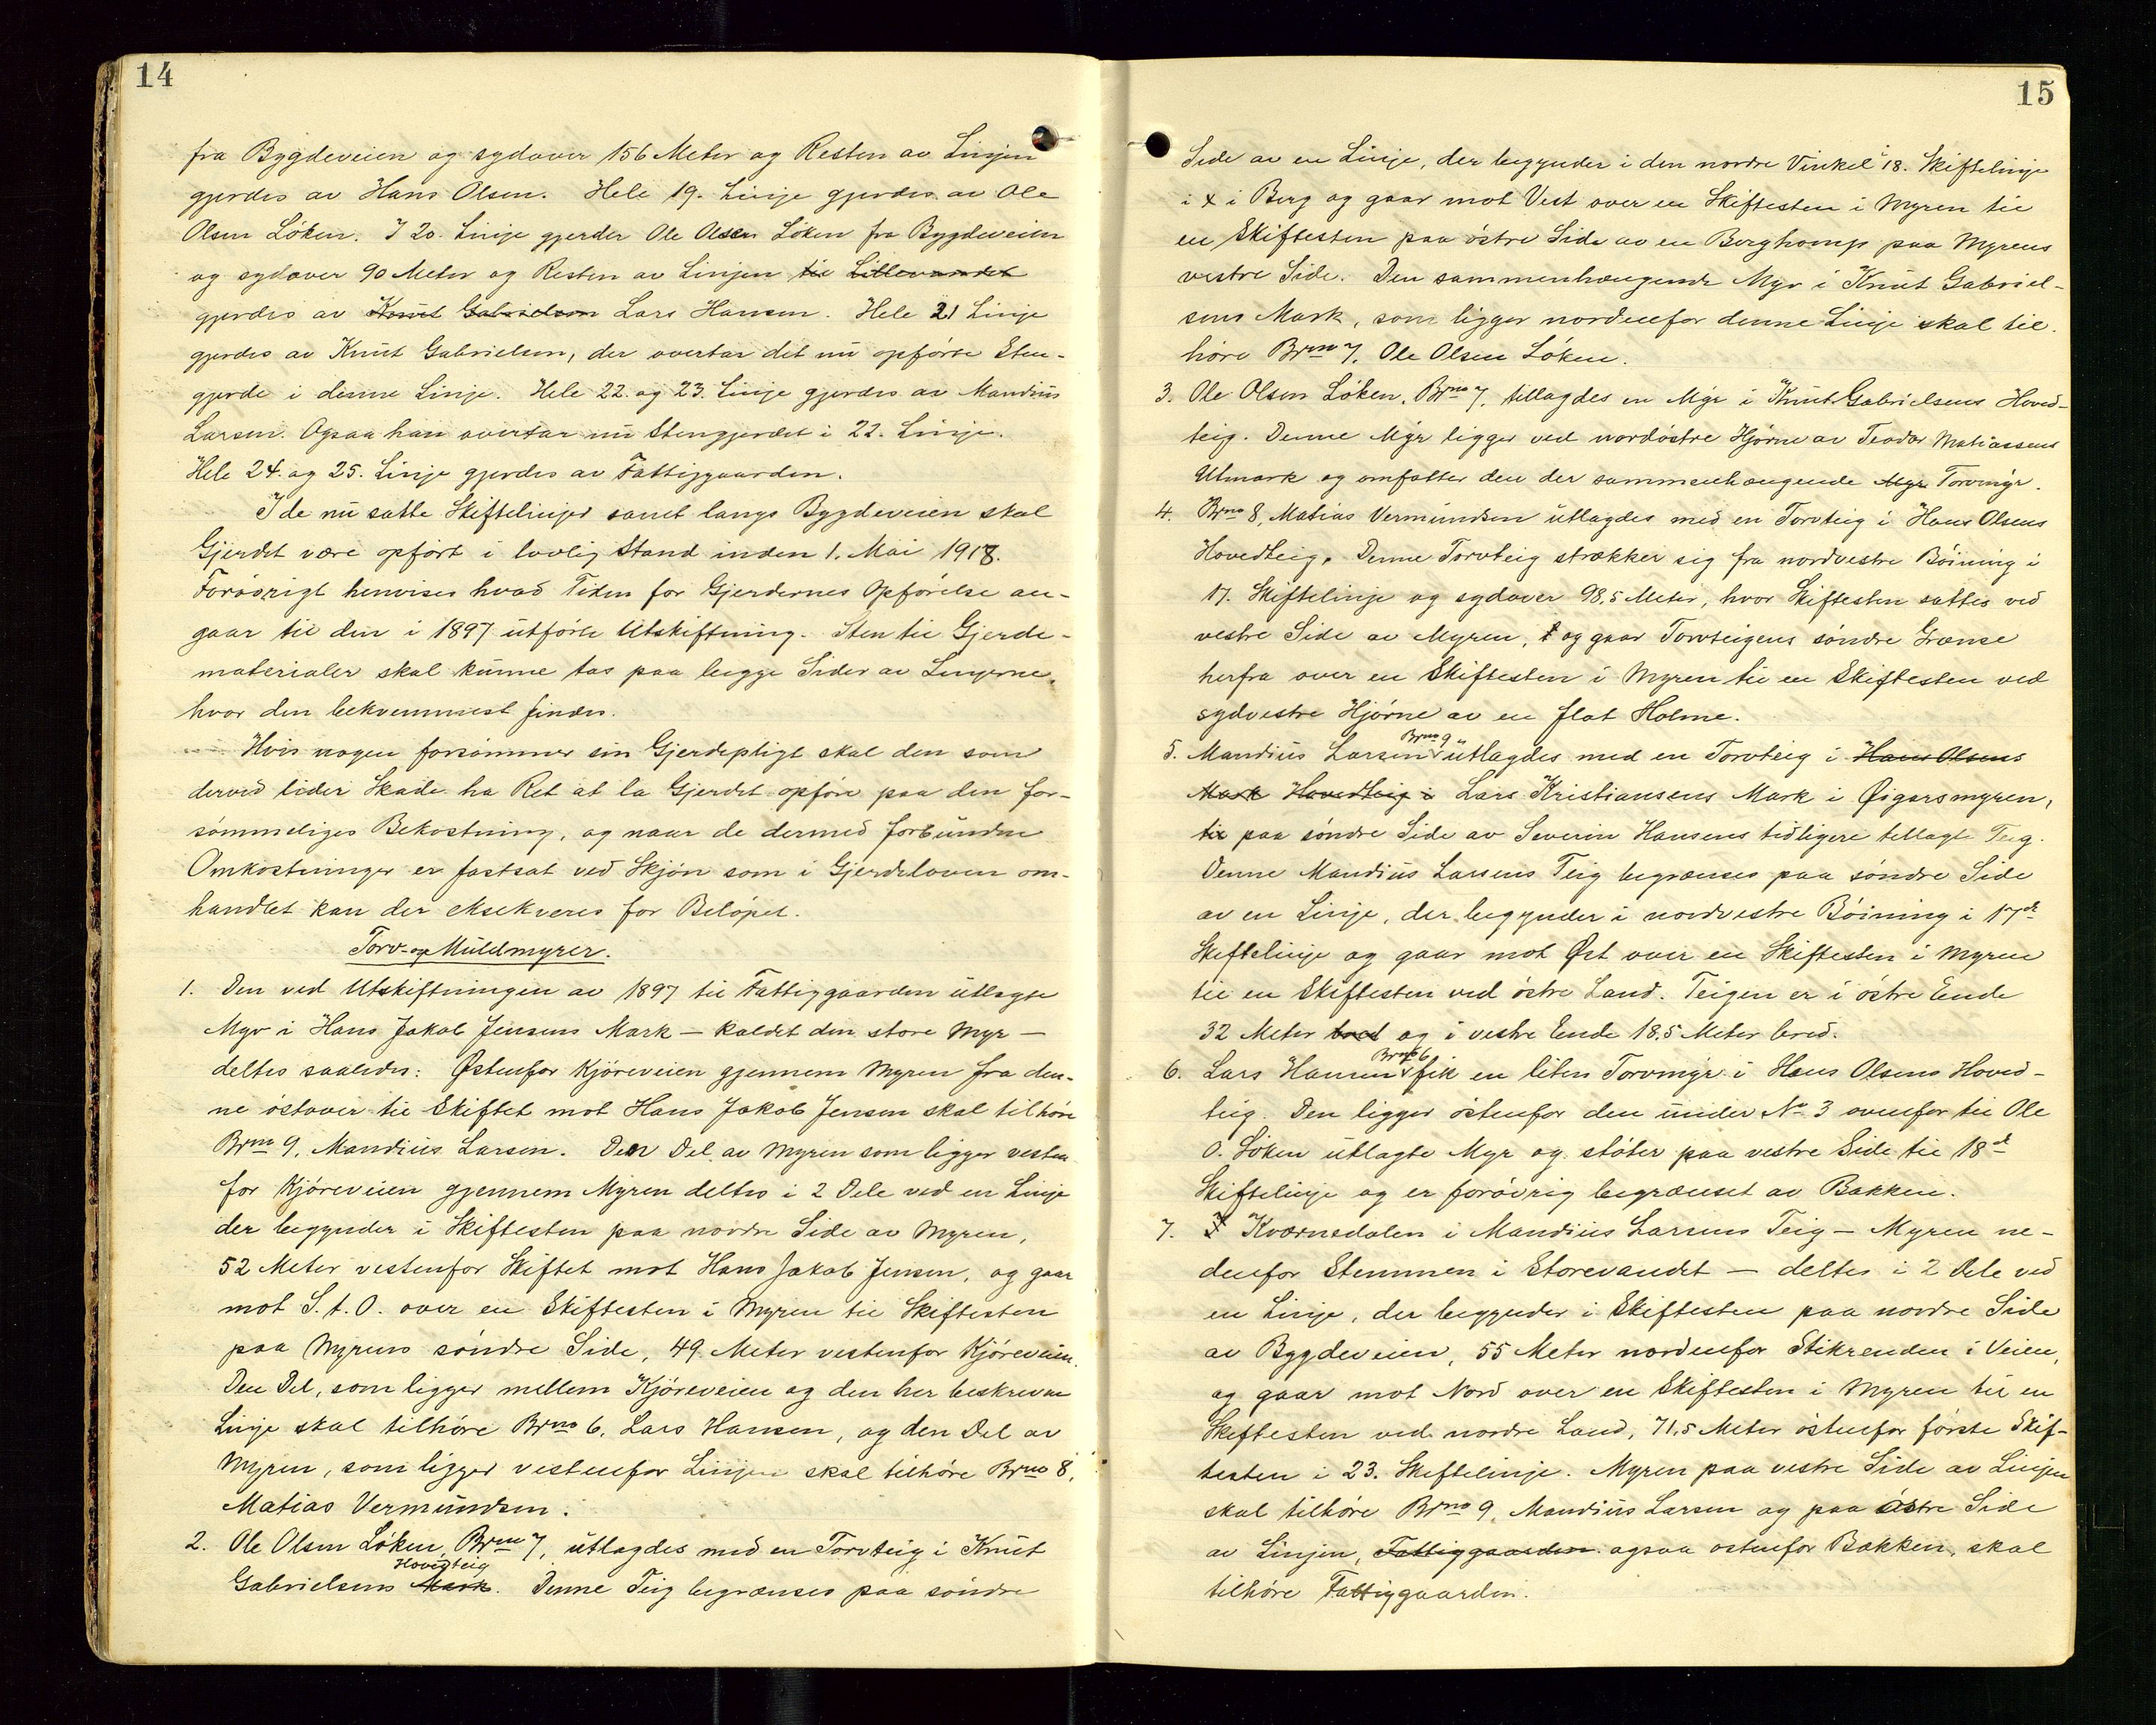 14
fra Bygdeveien og sydover 156 Meter og Resten av Linjen
gjerdes av Hans Olsen. Hele 19. Linje gjerdes av Ole
Olsen Löken. I 20. Linje gjerder Ole Olsen Löken fra Bygdeveien
og sydover 90 Meter og Resten av Linjen til Littlevandet
gjerdes av Knut Gabrielsen Lars Hansen. Hele 21 Linje
gjerdes av Knut Gabrielsen, der overtar det nu opförte Sten-
gjerde i denne Linje. Hele 22. og 23. Linje gjerdes av Mandius
Larsen. Ogsaa han overtar nu Stengjerdet i 22. Linje.
Hele 24. og 25. Linje gjerdes av Fattiggaarden.
I de nu satte Skiftelinjer samt langs Bygdeveien skal
Gjerdet være opfört i lovlig Stand inden 1. Mai 1918.
Forövrigt henvises hvad Tiden for Gjerdernes Opförelse an-
gaar til den i 1897 utförte Utskiftning. Sten til Gjerde-
materialer skal kunne tas paa begge Sider av Linjerne,
hvor den bekvemmest findes.
Hvis nogen forsömmer sin Gjerdepligt skal den som
derved lider Skade ha Ret at la Gjerdet opföre paa den for-
sömmeliges Bekostning, og naar de dermed forbundne
Omkostninger er fastsat ved Skjön som i Gjerdeloven om-
handlet kan der eksekveres for Belöpet.
Torv- og Muldmyrer.
1. Den ved Utskiftningen av 1897 til Fattiggaarden utlagte
Myr i Hans Jakob Jensens Mark — kaldet den store Myr —
deltes saaledes: Østenfor Kjöreveien gjennem Myren fra den-
ne östover til Skiftet mot Hans Jakob Jensen skal tilhöre
Brno 9, Mandius Larsen. Den Del av Myren som ligger vesten
for Kjöreveien gjennem Myren deltes i 2 Dele ved en Linje
der begynder i Skiftesten paa nordre Side av Myren,
52 Meter vestenfor Skiftet mot Hans Jakob Jensen, og gaar
mot S. t. O. over en Skiftesten i Myren til Skiftesten
paa Myrens söndre Side, 49 Meter vestenfor Kjöreveien.
Den Del, som ligger mellem Kjöreveien og den her beskrevne
Linje skal tilhöre Brno 6, Lars Hansen, og den Del av
Myren, som ligger vestenfor Linjen skal tilhöre Brno 8,
Matias Vermundsen.
2. Ole Olsen Löken, Brno 7, utlagdes med en Torvteig i Knut
Hovedteig
Gabrielsens Mark. Denne Teig begrænses paa söndre
15
Side av en Linje, der begynder i den nordre Vinkel i 18. Skiftelinje
i x i Berg og gaar mot Vest over en Skiftesten i Myren til
en Skiftesten paa östre Side av en Berghomp paa Myrens
vestre Side. Den sammenhængende Myr i Knut Gabriel-
sens Mark, som ligger nordenfor denne Linje skal til-
höre Brno 7, Ole Olsen Löken.
3. Ole Olsen Löken, Brno 7, tillagdes en Myr i Knut Gabrielsens Hoved-
teig. Denne Myr ligger ved nordöstre Hjörne av Teodor Matiassens
Utmark og omfatter den der sammenhængende Myr Torvmyr.
4. Brno 8, Matias Vermundsen utlagdes med en Torvteig i Hans Olsens
Hovedteig. Denne Torvteig strækker sig fra nordvestre Böining i
17. Skiftelinje og sydover 98,5 Meter, hvor Skiftesten sattes ved
vestre Side av Myren, og gaar Torvteigens söndre Grænse
herfra over en Skiftesten i Myren til en Skiftesten ved
sydvestre Hjörne av en flat Holme.
Brno 9
5. Mandius Larsen utlagdes med en Torvteig i Hans Olsens
Mark Hovedteig i Lars Kristiansens Mark i Øigarsmyren,
til paa söndre Side av Severin Hansens tidligere tillagte Teig.
Denne Mandius Larsens Teig begrænses paa söndre Side
av en Linje, der begynder i nordvestre Böining i 17de
Skiftelinje og gaar mot Øst over en Skiftesten i Myren
til en Skiftesten ved östre Land. Teigen er i östre Ende
32 Meter bred og i vestre Ende 18,5 Meter bred.
Brno 6
6. Lars Hansen fik en liten Torvmyr i Hans Olsens Hoved-
teig. Den ligger östenfor den under No 3 ovenfor til Ole
O. Löken utlagte Myr og stöter paa vestre Side til 18de
Skiftelinje og er forövrig begrænset av Bakken.
7. I Kværnedalen i Mandius Larsens Teig — Myren ne-
denfor Stemmen i Storevandet — deltes i 2 Dele ved
en Linje, der begynder i Skiftesten paa nordre Side
av Bygdeveien, 55 Meter nordenfor Stikrenden i Veien,
og gaar mot Nord over en Skiftesten i Myren til en
Skiftesten ved nordre Land, 71,5 Meter östenfor förste Skif-
testen i 23. Skiftelinje. Myren paa vestre Side av Linjen
skal tilhöre Brno 9, Mandius Larsen og paa östre Side
av Linjen, Fattiggaarden ogsaa östenfor Bakken, skal
tilhöre Fattiggaarden.